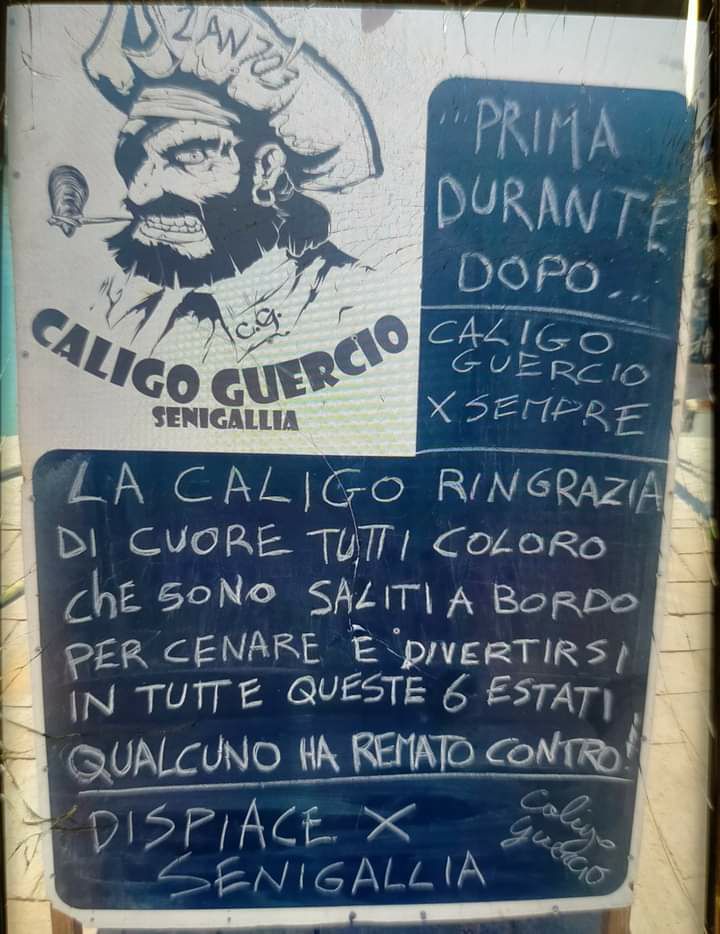 2 AN 703
C.G.
CALIGO GUERCIO
SENIGALLIA
... PRIMA
DURANTE
DOPO...
CALIGO
GUERCIO
X SEMPRE
LA CALIGO RINGRAZIA
DI CUORE TUTTI COLORO
ChE SONO SALITI A BORDO
PER CENARE E DIVERTIRSI
IN TUTTE QUESTE 6 ESTATI
QUALCUNO HA REMATO CONTRO!!
DISPIACE X
SENIGALLIA
Caligo
Guercio